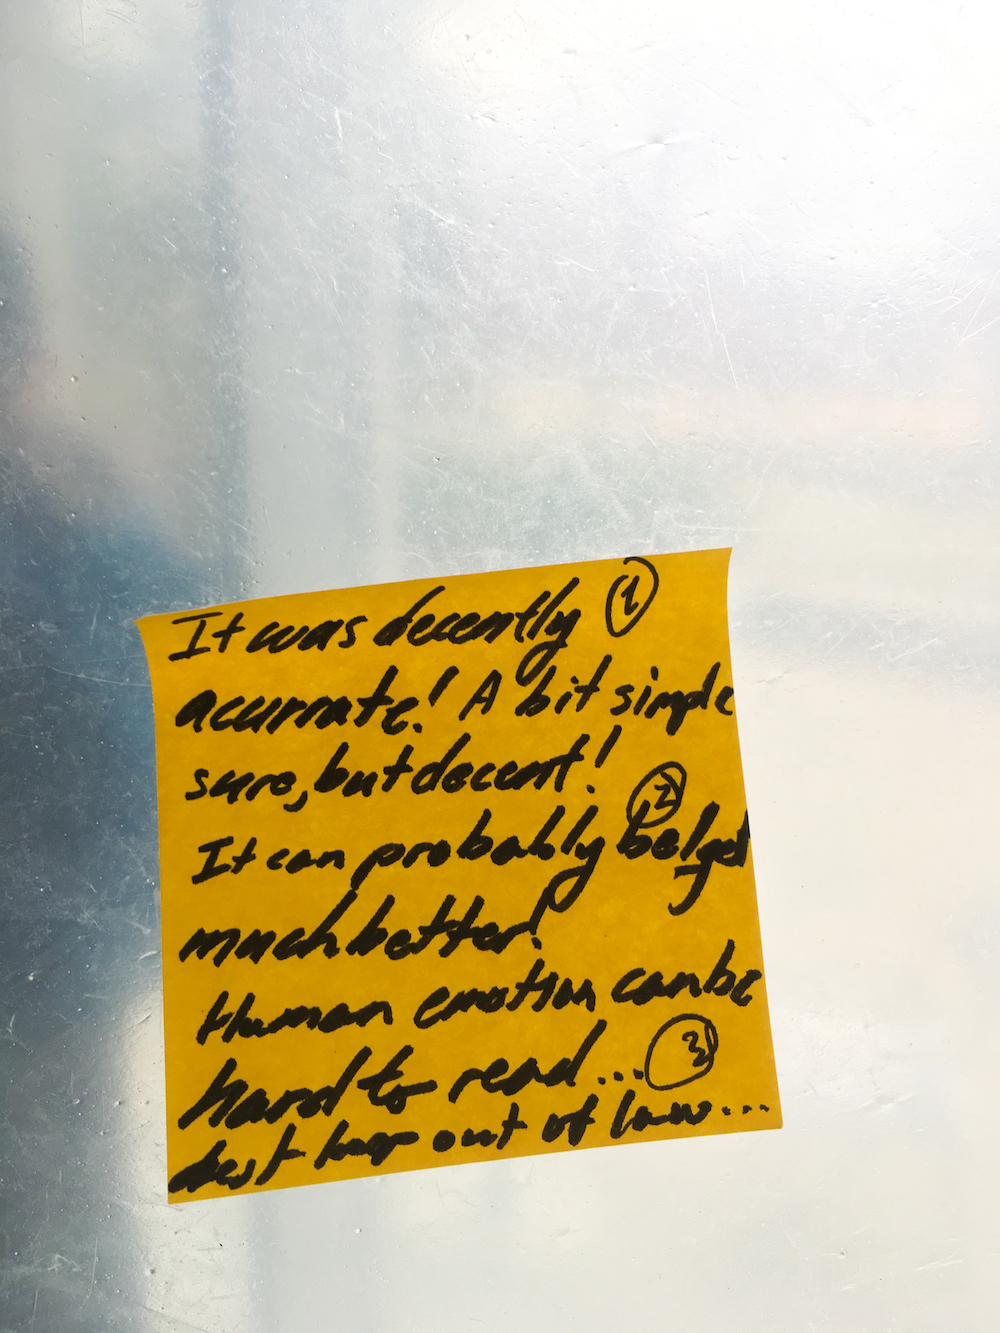 It was decently ①
accurate! A bit simple
sure, but decent!
②
It can probably
much better!
Human emotion can be
hard to read... ③
best keep out of law...